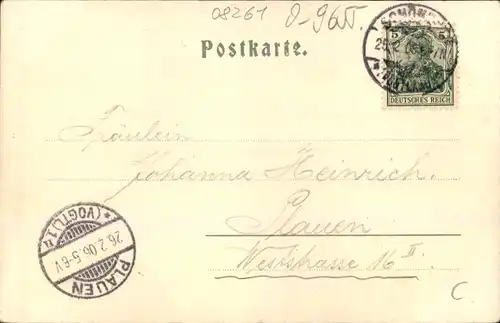 08261
Postkarte.
5 5
DEUTSCHES REICH
Fräulein
Johanna Heinrich.
Plauen
Weststrasse 16 II.
PLAUEN
*(VOGTL.)1.n
26.2.06.5-6.V.
C.